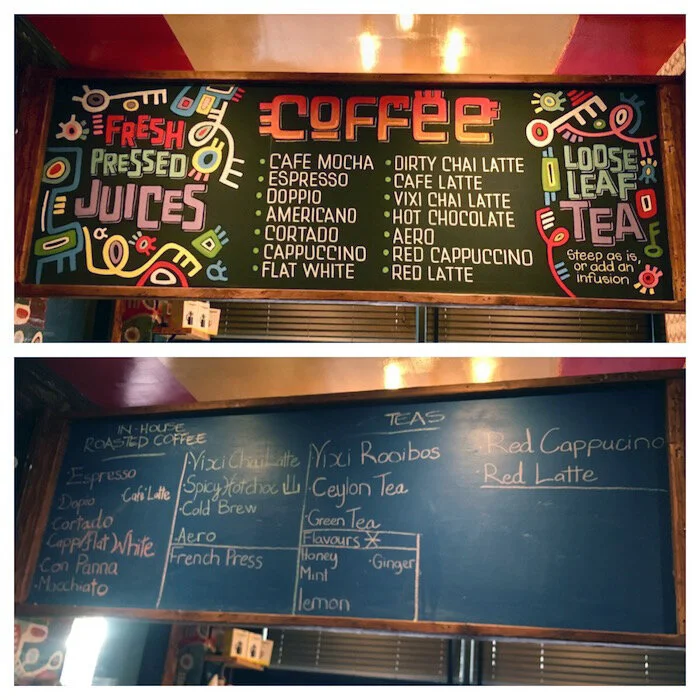 FRESH
PRESSED
JUICES
COFFEE
CAFE MOCHA
ESPRESSO
DOPPIO
AMERICANO
CORTADO
CAPPUCCINO
FLAT WHITE
DIRTY CHAI LATTE
CAFE LATTE
VIXI CHAI LATTE
HOT CHOCOLATE
AERO
RED CAPPUCCINO
RED LATTE
LOOSE
LEAF
TEA
Steep as is,
or add an
infusion
IN-HOUSE
ROASTED COFFEE
Espresso
Dopio
Cafe Latte
Cortado
Capp/Flat White
Con Panna
Macchiato
Vixi Chai Latte
Spicy Hotchoc
Cold Brew
Aero
French Press
TEAS
Vixi Rooibos
Ceylon Tea
Green Tea
Flavours
Honey
Ginger
Mint
lemon
Red Cappucino
Red Latte